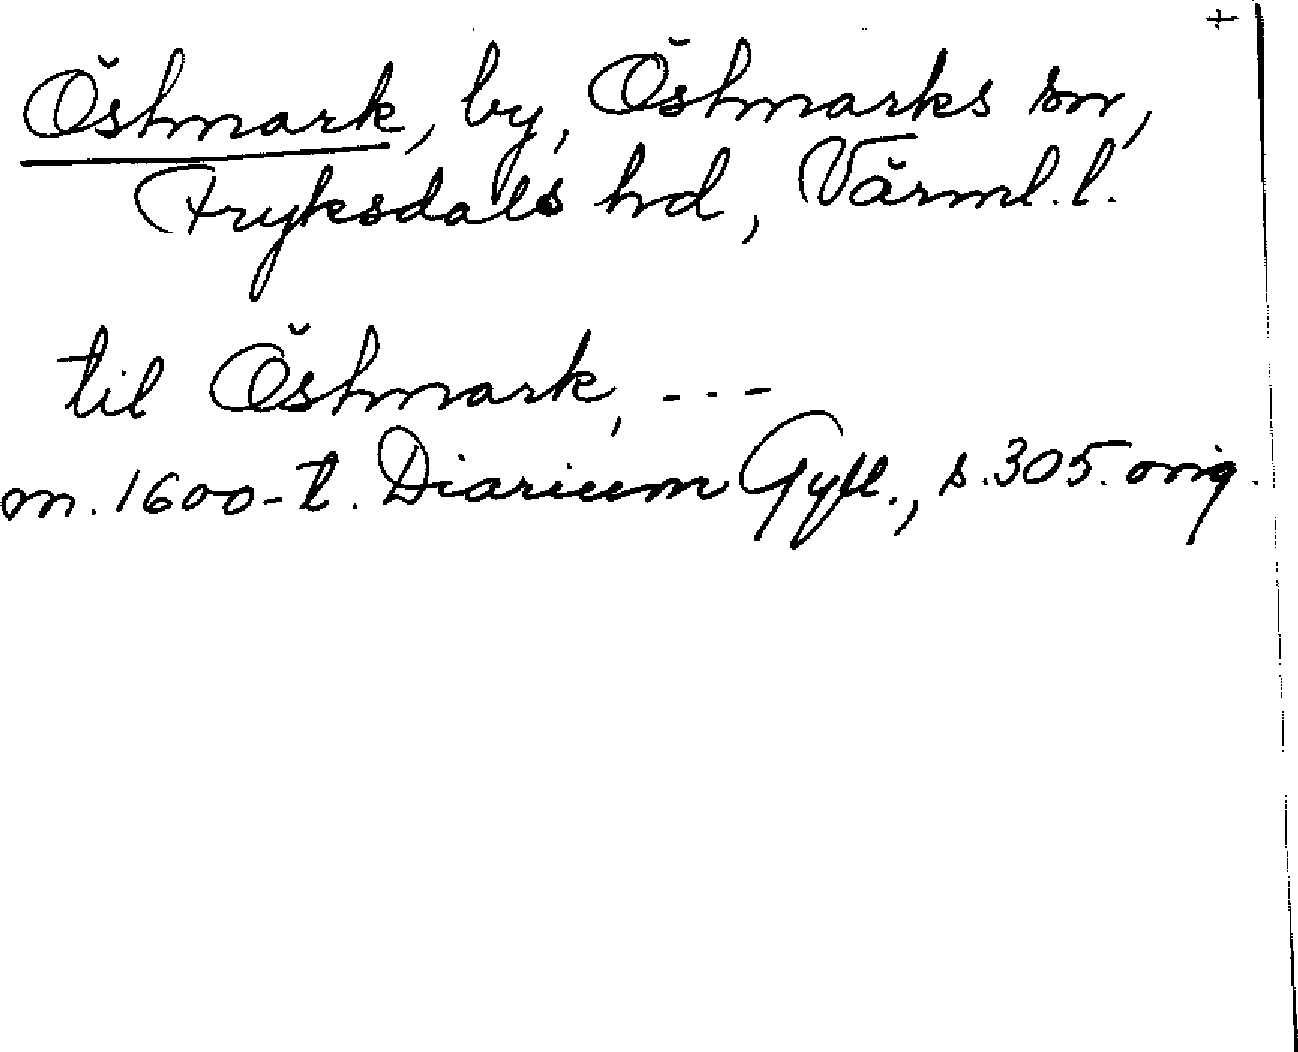 +
Östmark, by, Östmarks sn,
Fryksdals hd, Värml. l.
til Östmark, - - -
m. 1600-t. Diarium Gyll., s. 305. orig.